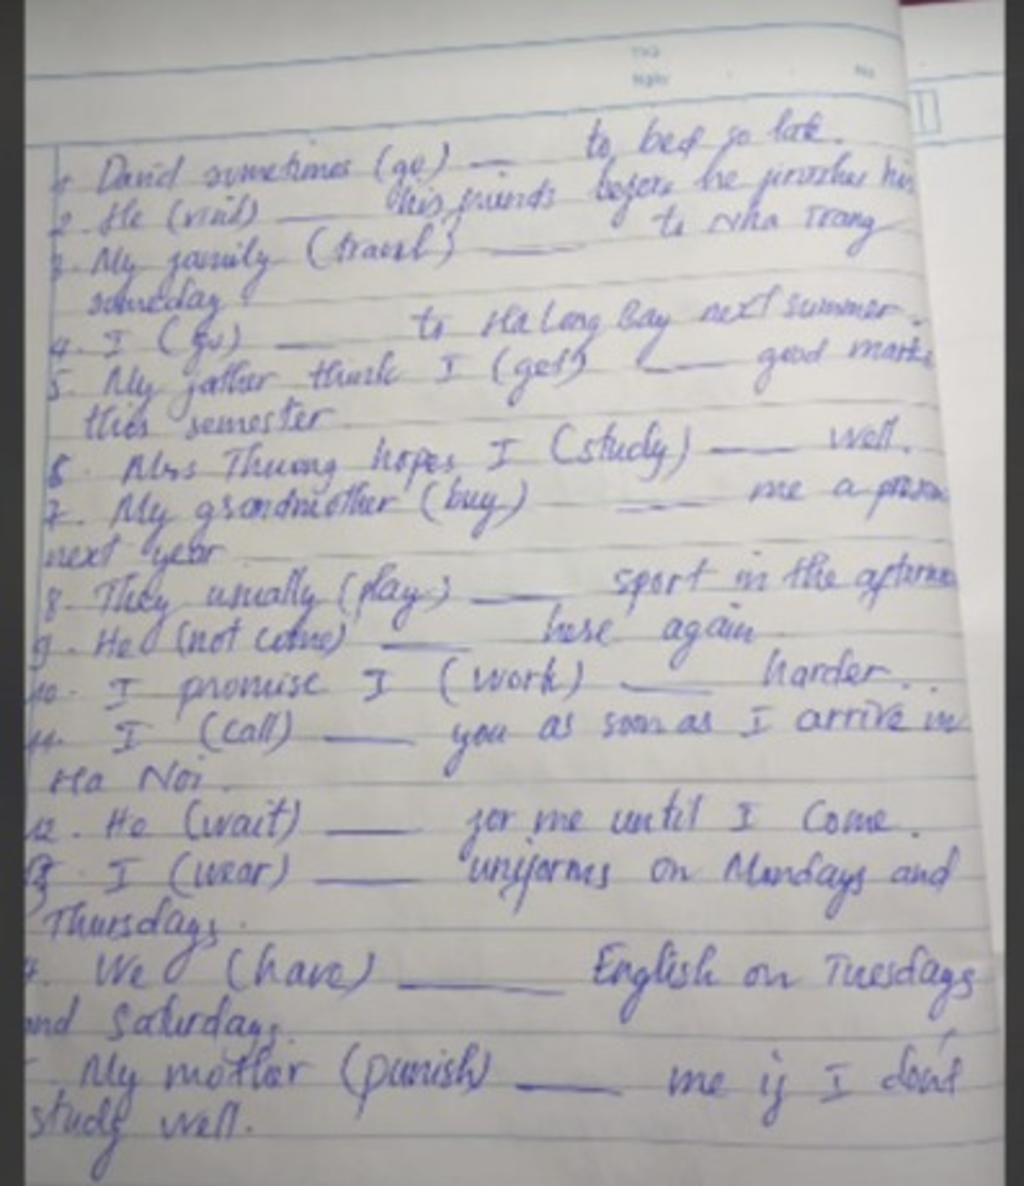 Thứ
Ngày No
1. David sometimes (go) ___ to bed so late.
2. He (visit) ___ his friends before he his
3. My family (travel) ___ to Nha Trang
someday.
4. I (go) ___ to Ha Long Bay next summer.
5. My father think I (get) ___ good marks
this semester
6. Mrs Thuong hopes I (study) ___ well.
7. My grandmother (buy) ___ me a
next year
8. They usually (play) ___ sport in the
9. He (not come) ___ here again
10. I promise I (work) ___ harder.
11. I (call) ___ you as soon as I arrive in
Ha Noi.
12. He (wait) ___ for me until I come.
I (wear) ___ uniforms on Mondays and
Thursdays.
4. We (have) ___ English on Tuesdays
and Saturdays.
My mother (punish) ___ me if I don't
study well.